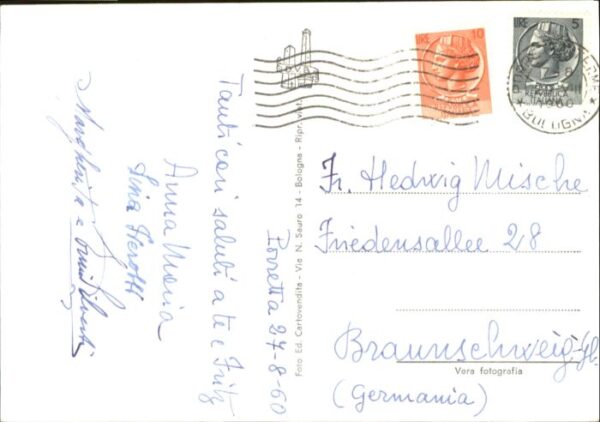 Tanti cari saluti a te e Fritz
Anna Maria
Margherita e
Porretta 27-8-60
Foto Ed. Cartovendita - Via N. Sauro 14 - Bologna - Ripr. viet.
LIRE 10
LIRE 5
BOLOGNA
Fr. Hedwig Mische
Friedensallee 28
Braunschweig
Vera fotografia
(Germania)